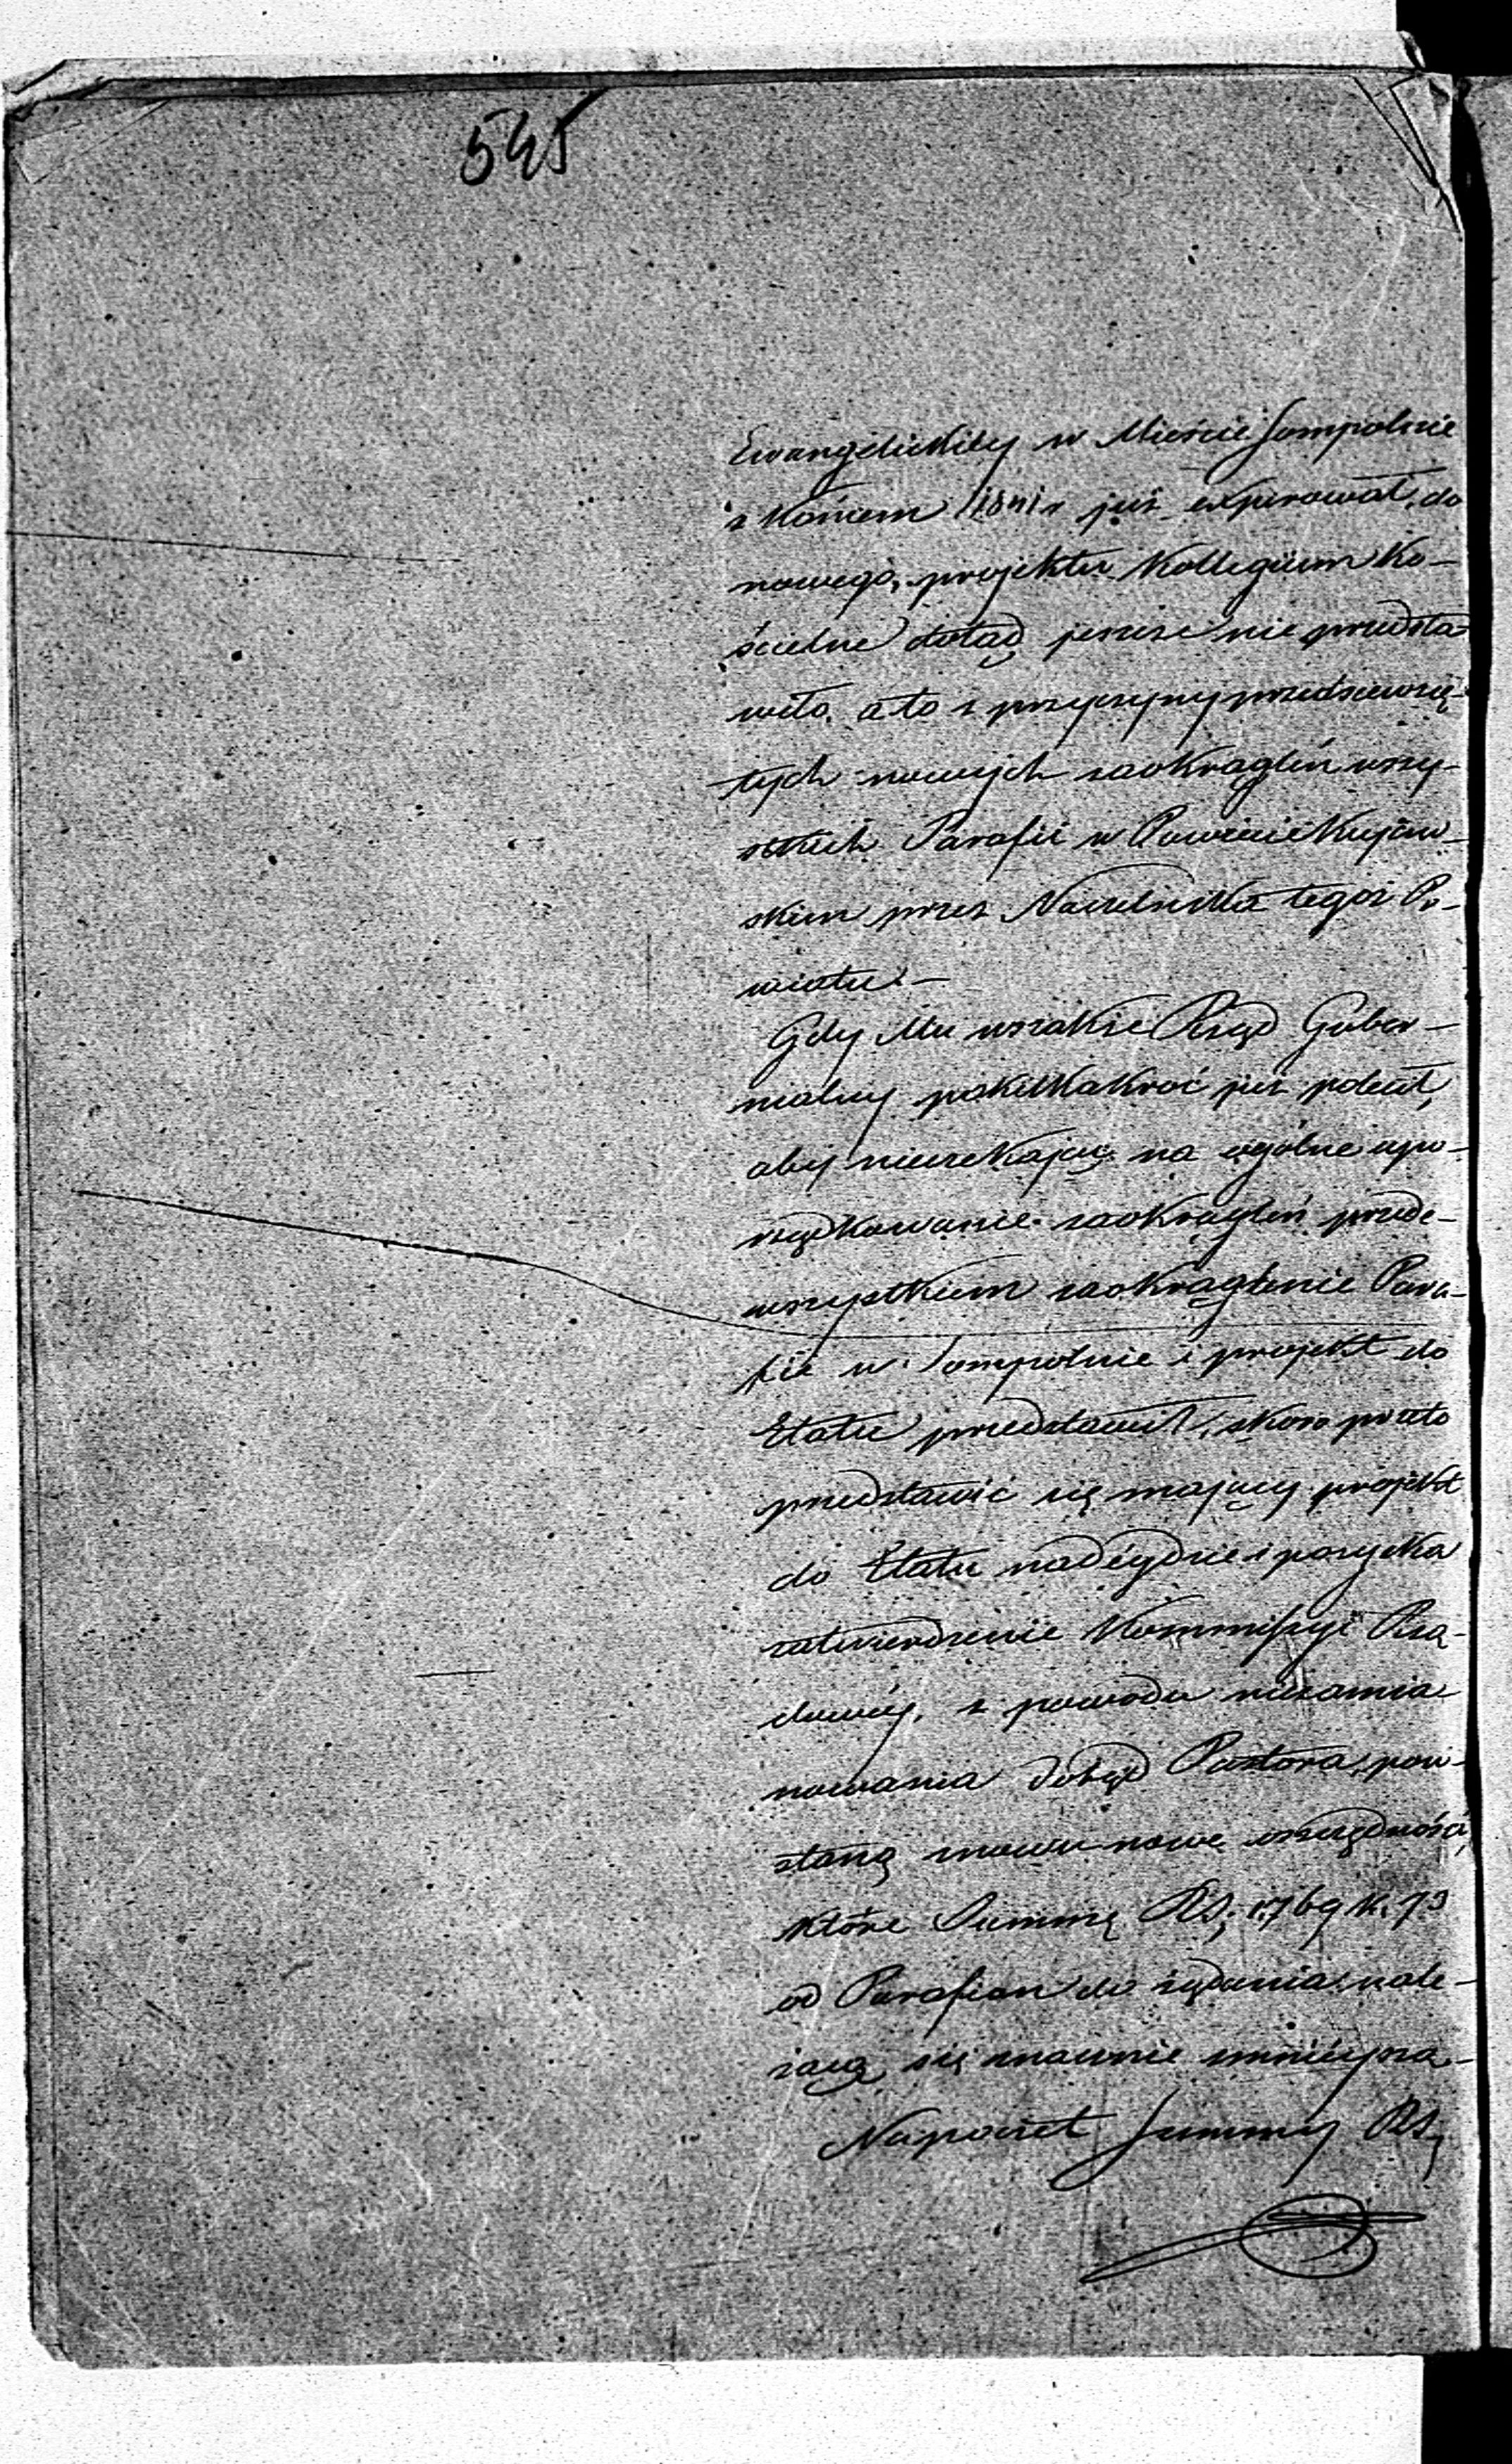 545
Ewangelickiey w Mieście Sompolnie
z końcem 1841 r już expirował, do
nowego projektu Kollegium Ko-
ścielne dotąd jeszcze nie przedsta-
wiło, a to z przyczyny przedsięwzię-
tych nowych zaokrągleń wszy-
stkich Parafii w Powiecie Kujaw-
skim przez Naczelnika tegoż Po-
wiatu.—
Gdy Mu wszakże Rząd Guber-
nialny pokilkakroć już polecił,
aby nieczekając na ogólne upo-
rządkowanie zaokrągleń przede-
wszystkiem zaokrąglenie Para-
fii w Sompolnie i projekt do
Etatu przedstawił, skoro przeto
przedstawić się mający projekt
do Etatu nadéydzie i pozyska
zatwierdzenie Kommissyi Rzą-
dowéy, z powodu niezamia-
nowania dotąd Pastora, pow-
staną znowu nowe oszczędności,
które Summę RS; 1769 k. 73
od Parafian do żądania nale-
żącą się znacznie zmniéyszą.
Napoczet Summy RS,